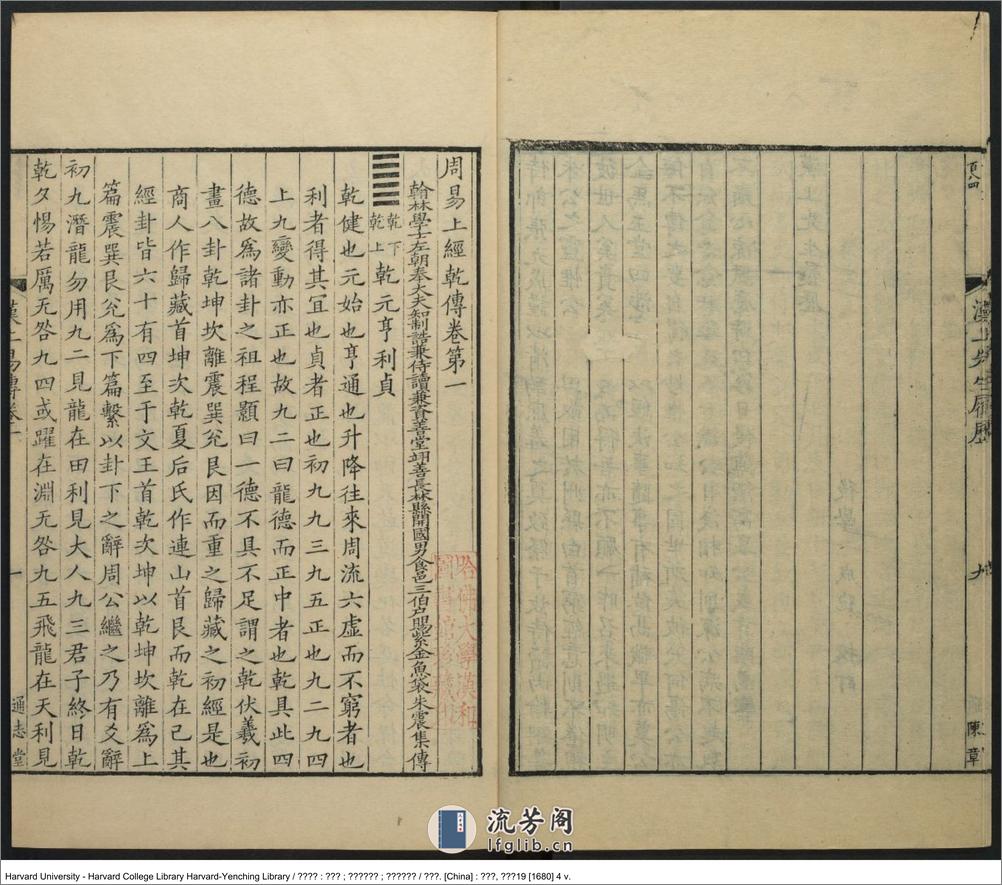 漢上先生履歷
九
陳章
周易上經乾傳卷第一
翰林學士左朝奉大夫知制誥兼侍讀兼資善堂翊善長林縣開國男食邑三伯戶賜紫金魚袋朱震集傳
乾下
乾上
乾元亨利貞
乾健也元始也亨通也升降往來周流六虛而不窮者也
利者得其冝也貞者正也初九九三九五正也九二九四
上九變動亦正也故九二曰龍德而正中者也乾具此四
德故爲諸卦之祖程顥曰一德不具不足謂之乾伏羲初
畫八卦乾坤坎離震巽兊艮因而重之歸藏之初經是也
商人作歸藏首坤次乾夏后氏作連山首艮而乾在己其
經卦皆六十有四至于文王首乾次坤以乾坤坎離爲上
篇震巽艮兊爲下篇繫以卦下之辭周公繼之乃有爻辭
初九潛龍勿用九二見龍在田利見大人九三君子終日乾
乾夕惕若厲无咎九四或躍在淵无咎九五飛龍在天利見
漢上易傳卷一
一
通志堂
哈佛大學漢和
圖書館珍藏印
流芳阁
lfglib.cn
Harvard University - Harvard College Library Harvard-Yenching Library / ???? : ??? ; ?????? ; ?????? / ???. [China] : ???, ???19 [1680] 4 v.